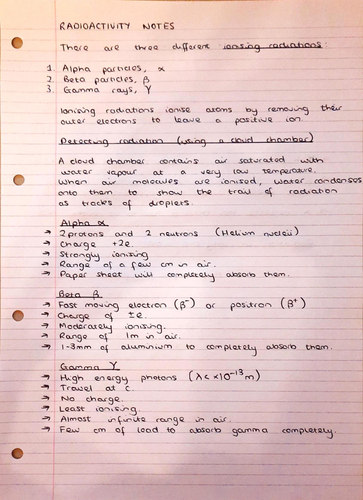 RADIOACTIVITY NOTES
There are three different ionising radiations:
1. Alpha particles, α
2. Beta particles, β
3. Gamma rays, γ
Ionising radiations ionise atoms by removing their
outer electrons to leave a positive ion.
Detecting radiation (using a cloud chamber)
A cloud chamber contains air saturated with
water vapour at a very low temperature.
When air molecules are ionised, water condenses
onto them to show the trail of radiation
as tracks of droplets.
Alpha α
→ 2 protons and 2 neutrons (Helium nuclei)
→ Charge +2e
→ Strongly ionising
→ Range of a few cm in air.
→ Paper sheet will completely absorb them.
Beta β
→ Fast moving electron (β⁻) or positron (β⁺)
→ Charge of ±e.
→ Moderately ionising.
→ Range of 1m in air.
→ 1-3mm of aluminium to completely absorb them.
Gamma γ
→ High energy photons (λ < ×10⁻¹³ m)
→ Travel at c.
→ No charge.
→ Least ionising.
→ Almost infinite range in air.
→ Few cm of lead to absorb gamma completely.